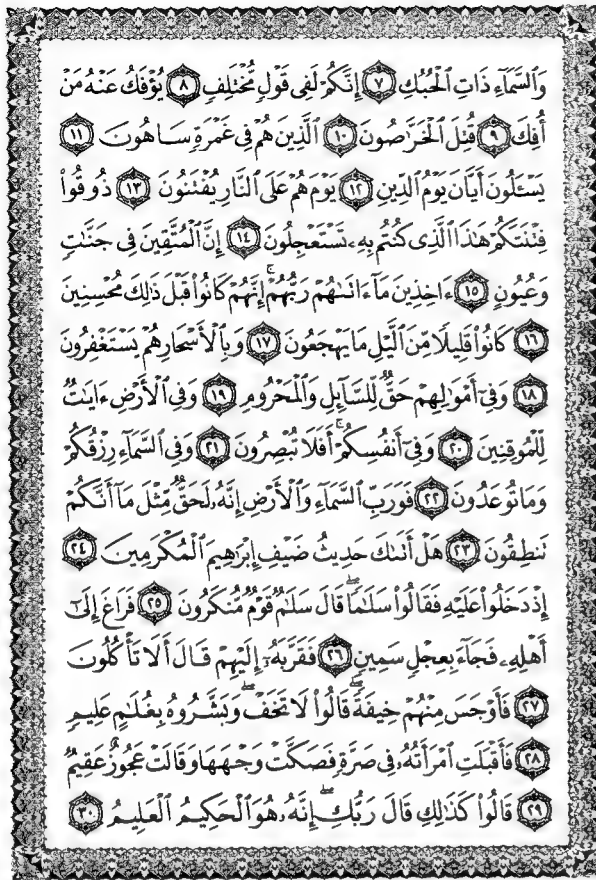 وَالسَّمَاءِ ذَاتِ الْحُبُكِ ﴿٧﴾ إِنَّكُمْ لَفِي قَوْلٍ مُّخْتَلِفٍ ﴿٨﴾ يُؤْفَكُ عَنْهُ مَنْ
أُفِكَ ﴿٩﴾ قُتِلَ الْخَرَّاصُونَ ﴿١٠﴾ الَّذِينَ هُمْ فِي غَمْرَةٍ سَاهُونَ ﴿١١﴾
يَسْـَٔلُونَ أَيَّانَ يَوْمُ الدِّينِ ﴿١٢﴾ يَوْمَ هُمْ عَلَى النَّارِ يُفْتَنُونَ ﴿١٣﴾ ذُوقُوا۟
فِتْنَتَكُمْ هَٰذَا الَّذِى كُنتُم بِهِۦ تَسْتَعْجِلُونَ ﴿١٤﴾ إِنَّ الْمُتَّقِينَ فِى جَنَّٰتٍ
وَعُيُونٍ ﴿١٥﴾ ءَاخِذِينَ مَآ ءَاتَىٰهُمْ رَبُّهُمْ ۚ إِنَّهُمْ كَانُوا۟ قَبْلَ ذَٰلِكَ مُحْسِنِينَ
﴿١٦﴾ كَانُوا۟ قَلِيلًا مِّنَ الَّيْلِ مَا يَهْجَعُونَ ﴿١٧﴾ وَبِالْأَسْحَارِ هُمْ يَسْتَغْفِرُونَ
﴿١٨﴾ وَفِىٓ أَمْوَٰلِهِمْ حَقٌّ لِّلسَّآئِلِ وَالْمَحْرُومِ ﴿١٩﴾ وَفِى الْأَرْضِ ءَايَٰتٌ
لِّلْمُوقِنِينَ ﴿٢٠﴾ وَفِىٓ أَنفُسِكُمْ ۚ أَفَلَا تُبْصِرُونَ ﴿٢١﴾ وَفِى السَّمَآءِ رِزْقُكُمْ
وَمَا تُوعَدُونَ ﴿٢٢﴾ فَوَرَبِّ السَّمَآءِ وَالْأَرْضِ إِنَّهُۥ لَحَقٌّ مِّثْلَ مَآ أَنَّكُمْ
تَنطِقُونَ ﴿٢٣﴾ هَلْ أَتَىٰكَ حَدِيثُ ضَيْفِ إِبْرَٰهِيمَ الْمُكْرَمِينَ ﴿٢٤﴾
إِذْ دَخَلُوا۟ عَلَيْهِ فَقَالُوا۟ سَلَٰمًا ۖ قَالَ سَلَٰمٌ قَوْمٌ مُّنكَرُونَ ﴿٢٥﴾ فَرَاغَ إِلَىٰٓ
أَهْلِهِۦ فَجَآءَ بِعِجْلٍ سَمِينٍ ﴿٢٦﴾ فَقَرَّبَهُۥٓ إِلَيْهِمْ قَالَ أَلَا تَأْكُلُونَ
﴿٢٧﴾ فَأَوْجَسَ مِنْهُمْ خِيفَةً ۖ قَالُوا۟ لَا تَخَفْ ۖ وَبَشَّرُوهُ بِغُلَٰمٍ عَلِيمٍ
﴿٢٨﴾ فَأَقْبَلَتِ امْرَأَتُهُۥ فِى صَرَّةٍ فَصَكَّتْ وَجْهَهَا وَقَالَتْ عَجُوزٌ عَقِيمٌ
﴿٢٩﴾ قَالُوا۟ كَذَٰلِكِ قَالَ رَبُّكِ ۖ إِنَّهُۥ هُوَ الْحَكِيمُ الْعَلِيمُ ﴿٣٠﴾